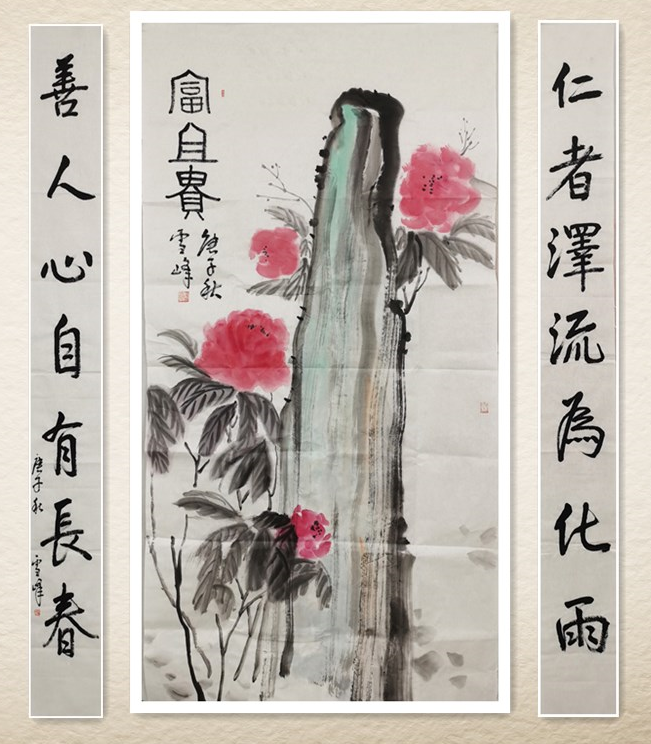 仁者澤流為化雨
富且貴
庚子秋
雪峰
善人心自有長春
庚子秋 雪峰